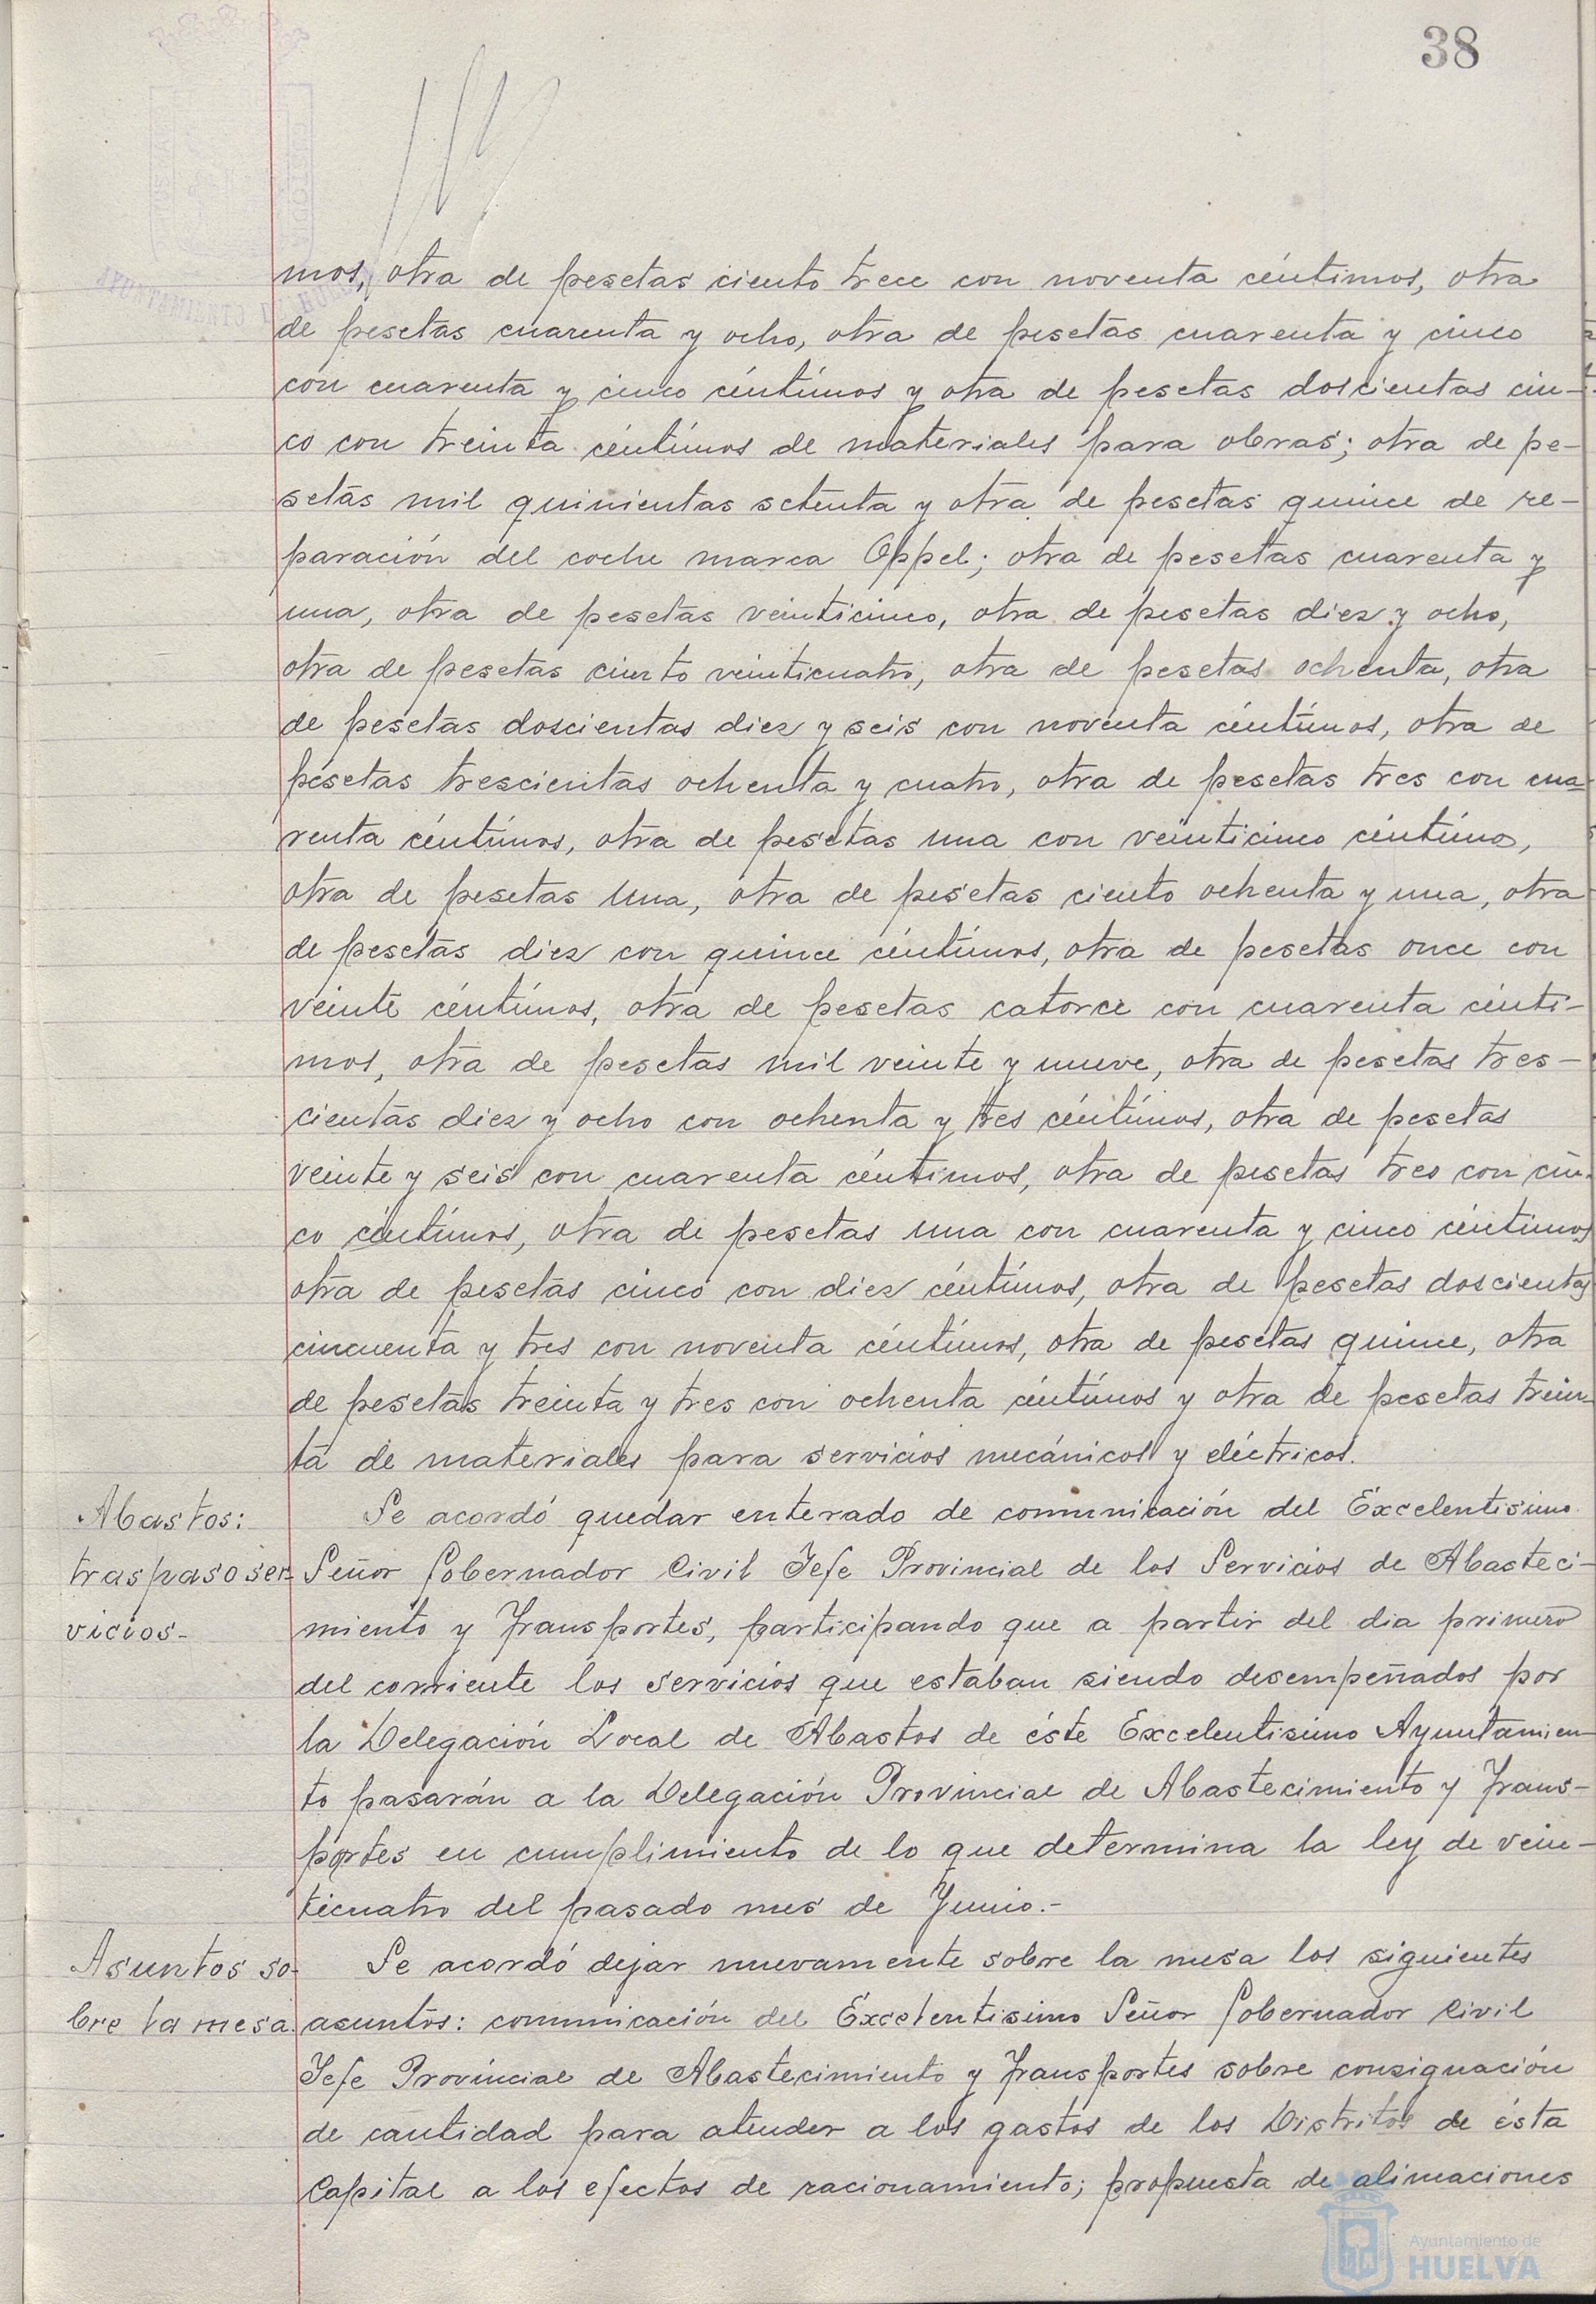 38
mos, otra de pesetas ciento trece con noventa céntimos, otra
de pesetas cuarenta y ocho, otra de pesetas cuarenta y cinco
con cuarenta y cinco céntimos y otra de pesetas doscientas cin-
co con treinta céntimos de materiales para obras; otra de pe-
setas mil quinientas setenta y otra de pesetas quince de re-
paración del coche marca Oppel; otra de pesetas cuarenta y
una, otra de pesetas veinticinco, otra de pesetas diez y ocho,
otra de pesetas ciento veinticuatro, otra de pesetas ochenta, otra
de pesetas doscientas diez y seis con noventa céntimos, otra de
pesetas trescientas ochenta y cuatro, otra de pesetas tres con cua-
renta céntimos, otra de pesetas una con veinticinco céntimos,
otra de pesetas una, otra de pesetas ciento ochenta y una, otra
de pesetas diez con quince céntimos, otra de pesetas once con
veinte céntimos, otra de pesetas catorce con cuarenta cénti-
mos, otra de pesetas mil veinte y nueve, otra de pesetas tres-
cientas diez y ocho con ochenta y tres céntimos, otra de pesetas
veinte y seis con cuarenta céntimos, otra de pesetas tres con cin-
co céntimos, otra de pesetas una con cuarenta y cinco céntimos
otra de pesetas cinco con diez céntimos, otra de pesetas doscientas
cincuenta y tres con noventa céntimos, otra de pesetas quince, otra
de pesetas treinta y tres con ochenta céntimos y otra de pesetas trein
ta de materiales para servicios mecánicos y eléctricos.
Abastos:
traspaso ser-
vicios-
Se acordó quedar enterado de comunicación del Excelentisimo
Señor Gobernador Civil Jefe Provincial de los Servicios de Abasteci-
miento y Transportes, participando que a partir del dia primero
del corriente los servicios que estaban siendo desempeñados por
la Delegación Local de Abastos de éste Excelentisimo Ayuntamien-
to pasarán a la Delegación Provincial de Abastecimiento y Trans-
portes en cumplimiento de lo que determina la ley de vein-
ticuatro del pasado mes de Junio.-
Asuntos so-
bre la mesa.
Se acordó dejar nuevamente sobre la mesa los siguientes
asuntos: comunicación del Excelentisimo Señor Gobernador Civil
Jefe Provincial de Abastecimiento y Transportes sobre consignación
de cantidad para atender a los gastos de los Distritos de ésta
Capital a los efectos de racionamiento; propuesta de alineaciones
Ayuntamiento de
HUELVA